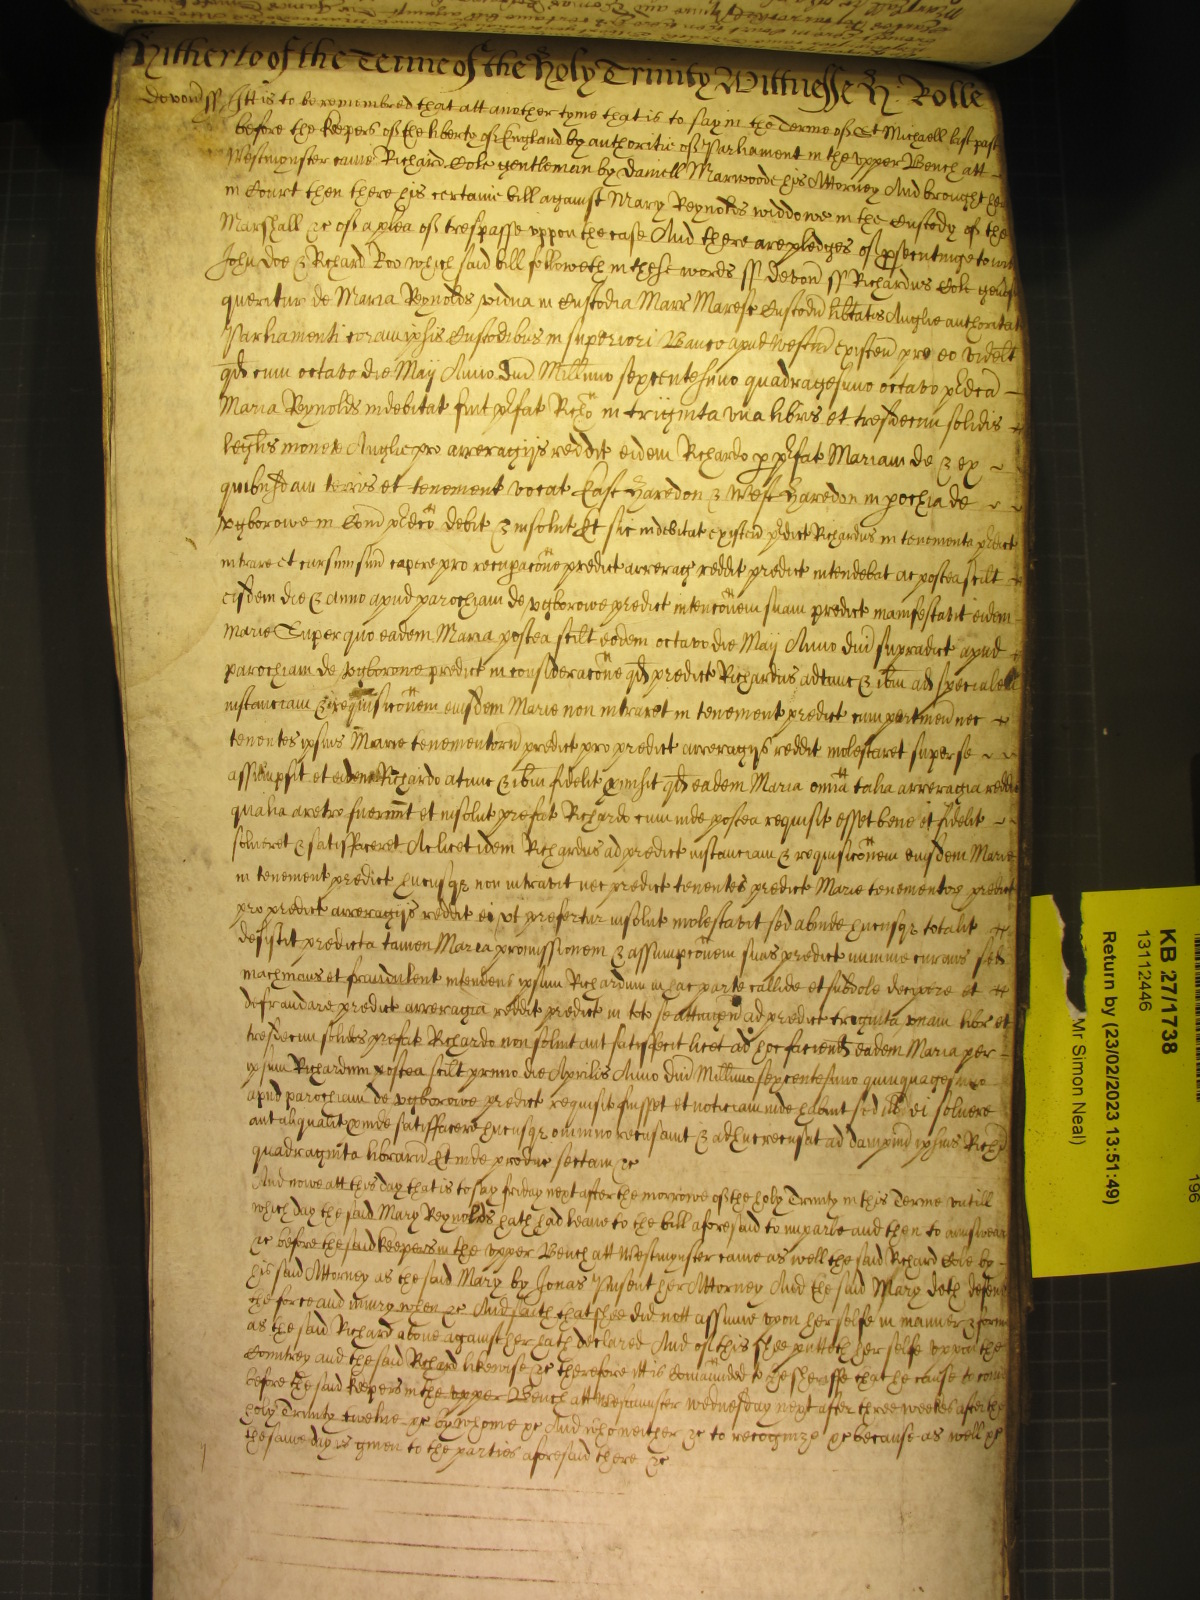 Hitherto of the Terme of the Holy Trinity Wittnesse H: Rolle
Devon ss Itt is to be remembred that att another tyme that is to say in the Terme of St Michaell last past
before the Keepers of the liberty of England by authoritie of Parliament in the upper Bench att
Westmynster came Richard Cole gentleman by Daniell Marwoode his Attorney And brought here
in Court then there his certaine bill against Mary Reynolds widdowe in the Custody of the
Marshall &c of a plea of trespasse uppon the case And there are pledges of prsecutinge to witt
John Doe & Richard Roo which said bill followeth in these words ss Devon ss Richardus Cole genosus
queritur de Maria Reynolds vidua in Custodia Marr Maresc Custodu libtatis Anglie authoritat
Parliamenti coram ipsis Custodibus in superiori Banco apud Westm existen pro eo videlt
qd cum octavo die Maij Anno Dni Millimo sexcentesimo quadragesimo octavo pdca
Maria Reynolds indebitat fuit pfat Rico in triginta una libris et tresdecim solidis
legalis monete Anglie pro arreragijs reddit eidem Richardo p pfat Mariam de & ex
quibusdam terris et tenement vocat East Haredon & West Haredon in pochia de
Ugborowe in Com pdco debit & insolut Et sic indebitat existen pdict Richardus in tenementa pdict
intrare et cursum suu capere pro recupacone predict arrerag reddit predict intendebat ac postea scilt
eisdem die & anno apud parochiam de Ugborowe predict intenconem suam predict manifestavit eidem
Marie Super quo eadem Maria postea scilt eodem octavo die Maij Anno dni supradict apud
parochiam de Ugborowe predict in consideracone qd predict Richardus adtunc & ibm ad specialem
instanciam & requisiconem eiusdem Marie non intraret in tenement predict cum pertinen nec
tenentes ipsius Marie tenementoru predict pro predict arreragijs reddit molestaret super se
assumpsit et eidem Richardo adtunc & ibm fidelit promisit qd eadem Maria omia talia arreragia reddit
qualia aretro fuerunt et insolut prefat Richardo cum inde postea requisit esset bene et fidelit
solveret & satisfaceret Ac licet idem Richardus ad predict instanciam & requisiconem eiusdem Marie
in tenement predict hucusq non intravit nec predict tenentes predict Marie tenementor predict
pro predict arreragijs reddit ei ut prefertur insolut molestavit sed abinde hucusq totalit
desistit predicta tamen Maria promissionem & assumpconem suas predict minime curans sed
machinans et fraudulent intendens ipsum Richardum in hac parte callide et subdole decipere et
defraudare predict arreragia reddit predict in toto se attingen ad predict triginta unam libr et
tresdecim solidos prefat Richardo non solvit aut satisfecit licet ad hoc faciend eadem Maria per
ipsum Richardum postea scilt primo die Aprilis Anno Dni Millimo sexcentesimo quinquagesimo
apud parochiam de Ugborowe predict requisit fuisset et noticiam inde habuit sed ill ei solvere
aut aliqualit proinde satisfacere hucusq omnino recusavit & adhuc recusat ad dampnu ipsius Rich
quadraginta libraru Et inde produc sectam &c
And nowe att this day that is to say friday next after the morrowe of the holy Trinity in this Terme untill
which day the said Mary Reynolds hath had leave to the bill aforesaid to imparle and then to answeare
&c before the said Keepers in the upper Bench att Westmynster came as well the said Richard Cole by
his said Attorney as the said Mary by Jonas Pinsent her Attorney And the said Mary doth defend
the force and iniury when &c And saith that shee did nott assume upon her selfe in manner & forme
as the said Richard above against her hath declared And of this shee putteth her selfe uppon the
Countrey and the said Richard likewise &c therefore itt is Comanded to the sheriffe that he cause to come
before the said Keepers in the upper Bench att Westminster Wednesday next after three weekes after the
holy Trinity twelve &c by whome &c And who neither &c to recognize &c because as well &c
the same day is given to the parties aforesaid there &c
KB 27/1738
13112446
Return by (23/02/2023 13:51:49)
Mr Simon Neal)
196